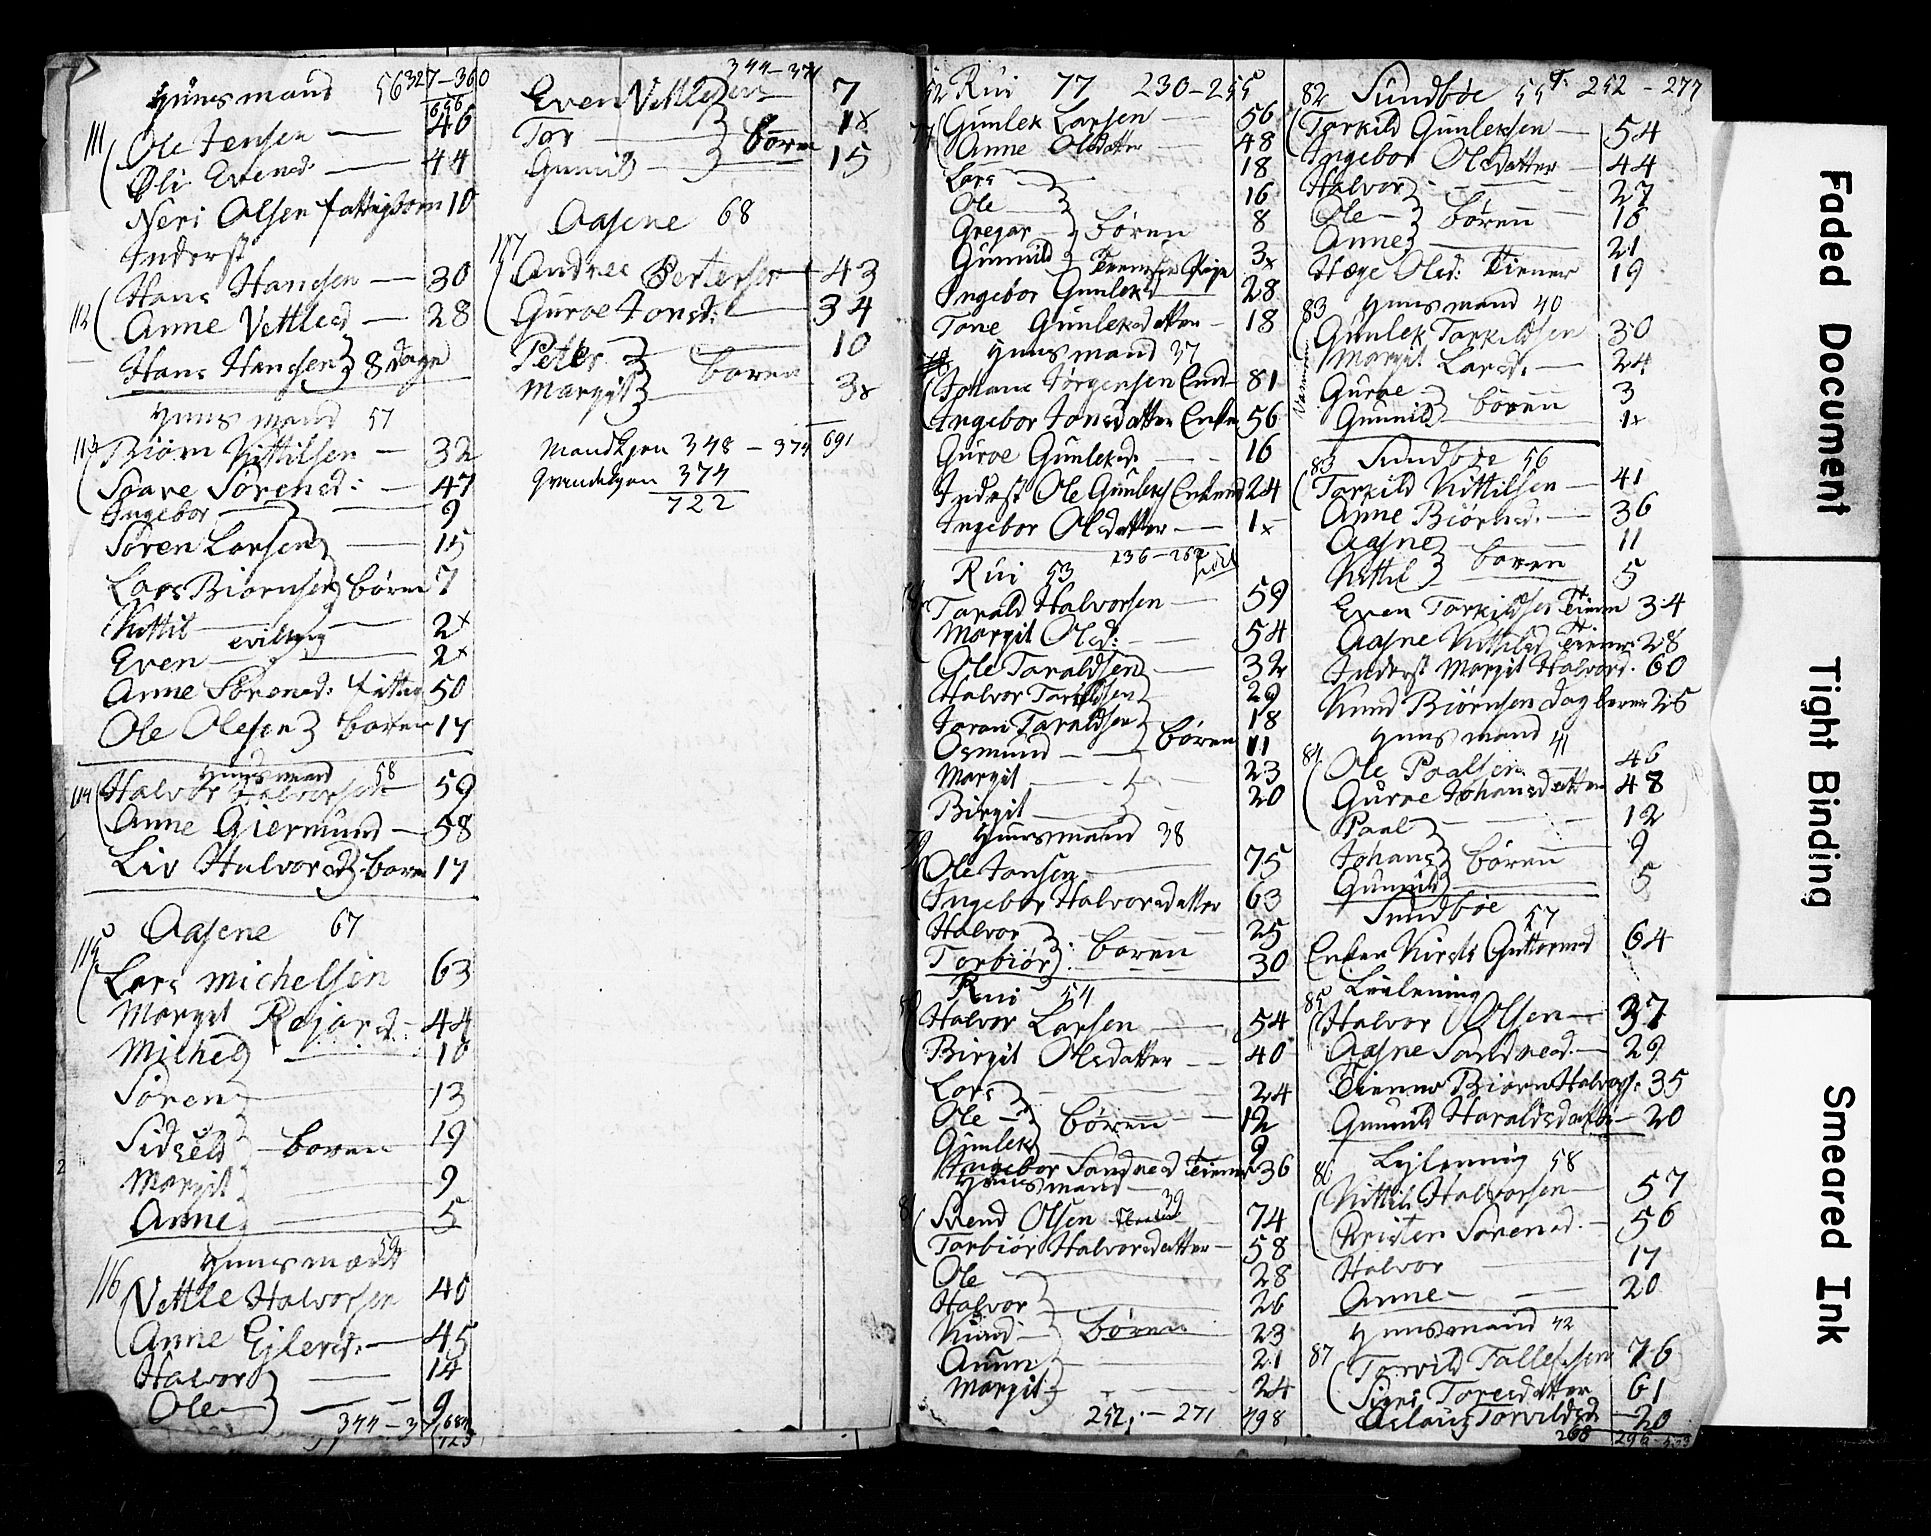 Huusmand 56 327-360
656
111 Ole Jensen — 46
Øli Evensd: — 44
Neri Olsen fattigbørn 10
Inderst
Hans Hansen — 30
112 Anne Vettlesd — 28
Hans Hansen 8 dage
Huusmand 57
113 Biørn Kittilsen — 32
Sørensd: — 47
Ingebor — 9
Søren Larsen — 15
Lars Biørnsen børn 7
Kittil — 2x
Even tvilling — 2x
Anne Sørensd: 50
Ole Olesen børen 17
Huusmand 58
114 Halvor Halvorsen 59
Anne Giermund — 58
Liv Halvorsd børen 17
Aasene 67
115 Lars Michelsen 63
Margit 44
Michel — 10
Søren — 13
Sidseld — børen 19
Margit — 9
Anne — 5
Huusmand 59
116 Vettle Halvorsen 40
Anne Ejlersd: — 45
Halvor — 14
Ole — 9
344-37
344-371
Even Vettlesen 7
Tor — børen 1x
Gunild — 15
Aasene 68
117 Andree 43
Guroe Jonsd: — 34
Peder — 10
Margit børen 3x
Mandkjøn 348-374 691
Qvindekjøn 374
722
52 Rui 77 230-255
77 Gunlek Larsen — 56
Anne Olsdatter — 48
Lars — 18
Ole — 16
Gregar børen 8
Gunnild — 3x
Ingebor Gunleksd 28
Tone Gunleksdatter — 18
Huusmand 37
78 Johans Jørgensen 81
Ingebor Jonsdatter Enke 56
Guroe Gunleksd. — 16
Inderst Ole Gunleks Enkem 24
Ingebor Olsdatter — 1x
236-262
Rui 53
Tarald Halvorsen — 59
Margit Olsd: — 54
Ole Taraldsen — 32
Halvor Taraldsen 29
Joran Taraldsen 18
Osmund — børen 11
Margit — 23
Birgit — 20
Huusmand 38
79 Ole Jonsen — 75
Ingebor Halvorsdatter 63
Halvor — 25
Torbiør børen 30
Rui 54
Halvor Larsen — 54
Birgit Olsdatter — 40
Lars — 24
Ole — børen 12
Gunlek 9
Ingebor Sandresd Tienner 36
Huusmand 39
81 Svend Olsen 74
Torbiør Halvorsdatter — 58
Ole 28
Halvor 26
Knud — børen 23
Aaun 21
Margit — 24
252,-271 498
82 Sundbøe 55 252-277
Torkild Gunleksen — 54
Ingebor Olsdatter — 44
Halvor — 27
Ole — børen 16
Anne — 21
Hæge Olsd: Tiener 19
83 Huusmand 40
Gunlek Torkildsen 30
Margit Larsd. — 24
Guroe 3
Gunild børen 1x
83 Sundbøe 56
Torkild Kittilsen — 41
Anne Biørnsd. — 36
Aasne — 11
Kittil børen 5
Even Torkildsen Tienner 34
Aasne Kittilsd Tiener 28
Inderst Margit Halvord. 60
Knud Biørnsen 25
Huusmand 41
84 Ole Paalsen — 46
Guroe Johansdatter 48
Paal — 12
Johans børen 9
Gunild — 5
Sundbøe 57
Enken Guttormsd 64
85 Leilening
Halvor Olsen — 37
Aasne Sandresd. — 29
Tienner Biørn Halvors: 35
Gunnild Haraldsdatter — 20
86 Lejlening 58
Kittil Halvorsen — 57
Kristen Sørensd. — 56
Halvor — 17
Anne — 20
Huusmand 42
87 Torvild Tallefsen 76
Signi Toresdatter 61
Aslaug Torvildsd — 20
268
Faded Document
Tight Binding
Smeared Ink